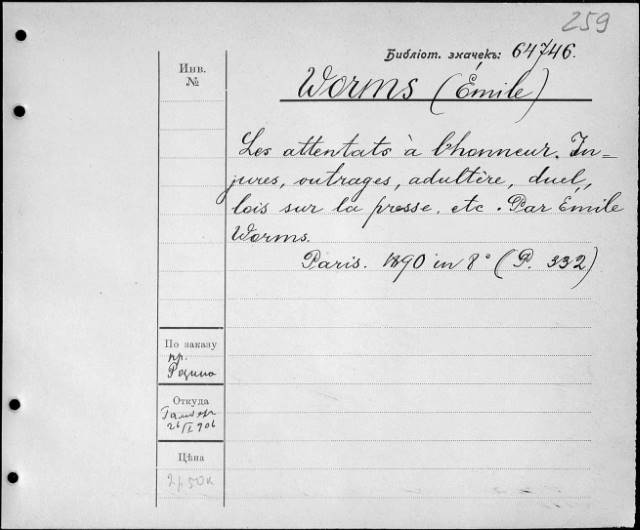 259
Библіот. значекъ: 64746.
Инв.
№
Worms (Émile)
Les attentats à l'honneur. In=
jures, outrages, adultère, duel,
lois sur la presse, etc. Par Émile
Worms.
Paris. 1890 in 8° (P. 332)
По заказу
пр.
Откуда
26/I 906
Цѣна
2р. 50к